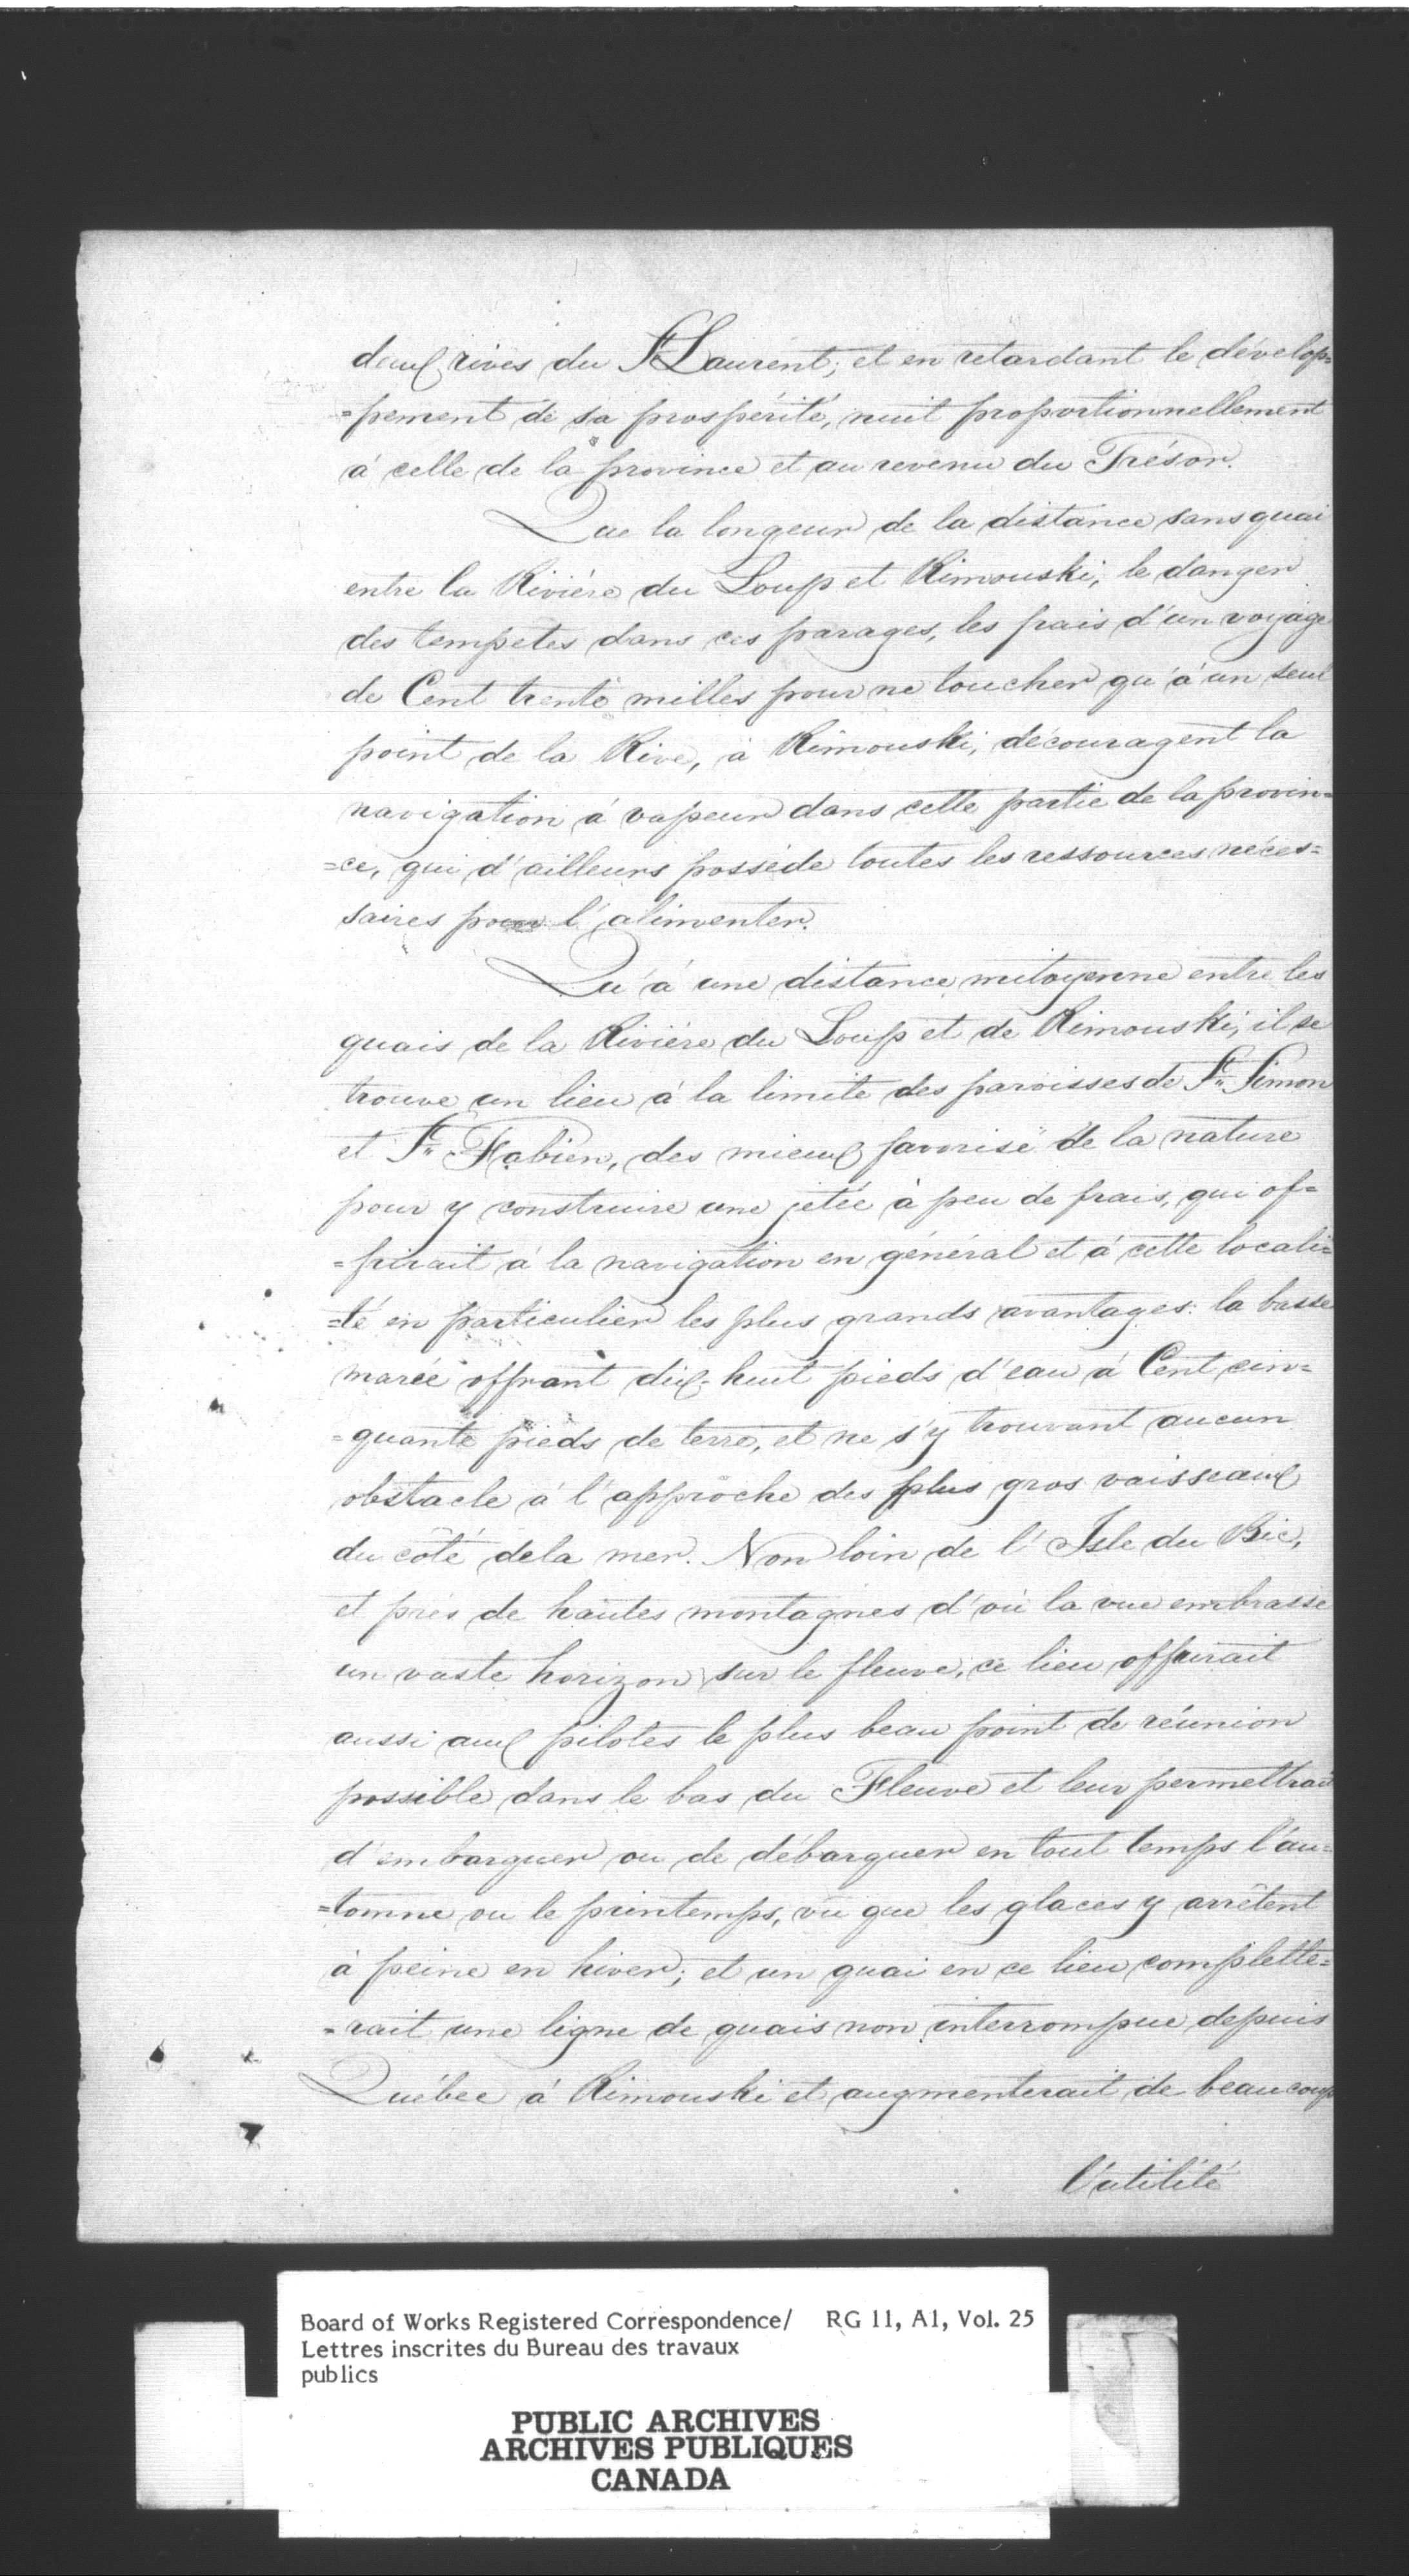 deux rives du St Laurent, et en retardant le dévelop=
=pement de sa prospérité, nuit proportionnellement
à celle de la province et au revenu du Trésor.
Que la longeur de la distance sans quai
entre la Rivière du Loup et Rimouski, le danger
des tempetes dans ces parages, les frais d'un voyage
de Cent trente milles pour ne toucher qu'à un seul
point de la Rive, à Rimouski, découragent la
navigation à vapeur dans cette partie de la provin=
=ce, qui d'ailleurs posséde toutes les ressources néces=
saires pour l'alimenter.
Qu'à une distance mitoyenne entre les
quais de la Rivière du Loup et de Rimouski, il se
trouve un lieu à la limite des paroisses de St. Simon
et St. Fabien, des mieux favorisé de la nature
pour y construire une jetée à peu de frais, qui of=
=frirait à la navigation en général et à cette locali=
=té en particulier les plus grands avantages: la basse
marée offrant dix-huit pieds d'eau à Cent cin=
=quante pieds de terre, et ne s'y trouvant aucun
obstacle à l'approche des plus gros vaisseaux
du côté dela mer. Non loin de l'Isle du Bic,
et près de hautes montagnes d'où la vue embrasse
un vaste horizon sur le fleuve, ce lieu offrirait
aussi aux pilotes le plus beau point de réunion
possible dans le bas du Fleuve et leur permettrait
d'embarquer ou de débarquer en tout temps l'au=
=tomne ou le printemps, vû que les glaces y arrêtent
à peine en hiver; et un quai en ce lieu complette=
=rait une ligne de quais non interrompue depuis
Québec à Rimouski et augmenterait de beaucoup
l'utilité
Board of Works Registered Correspondence/ RG 11, A1, Vol. 25
Lettres inscrites du Bureau des travaux
publics
PUBLIC ARCHIVES
ARCHIVES PUBLIQUES
CANADA